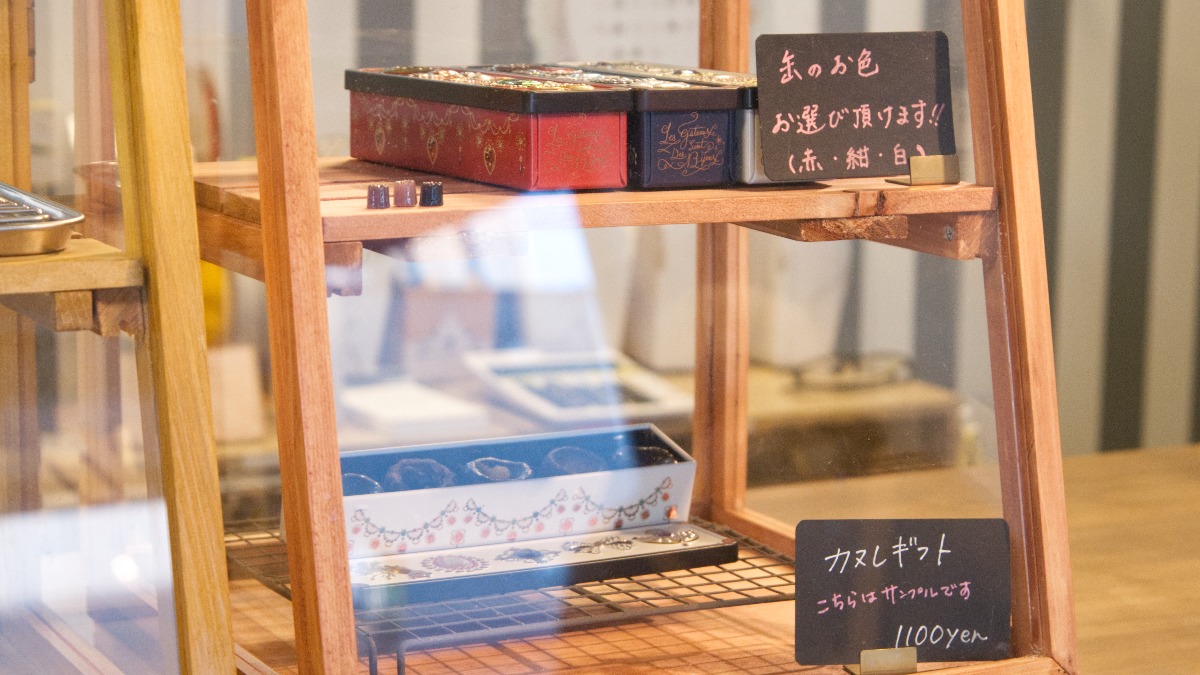 缶のお色
お選び頂けます!!
(赤・紺・白)
Les Gâteaux
Sont
Des Bijoux
カヌレギフト
こちらはサンプルです
1100yen